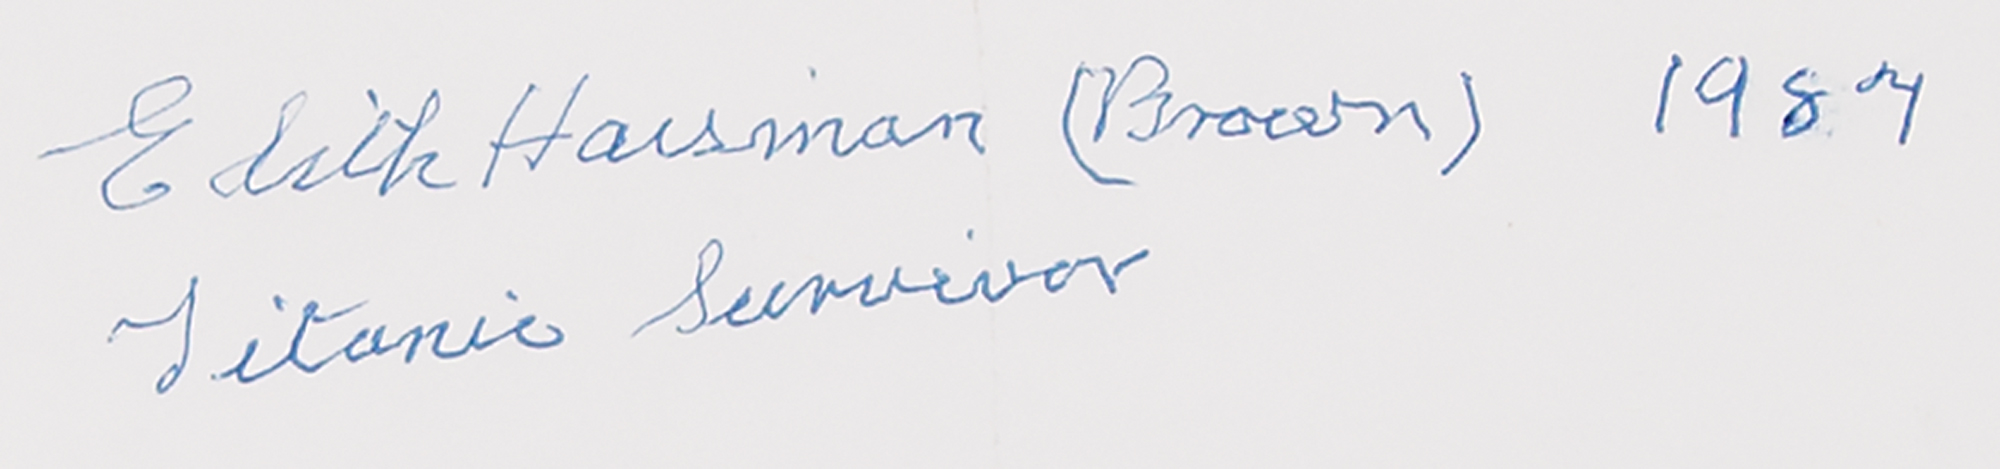 Edith Haisman (Brown) 1987
Titanic Survivor